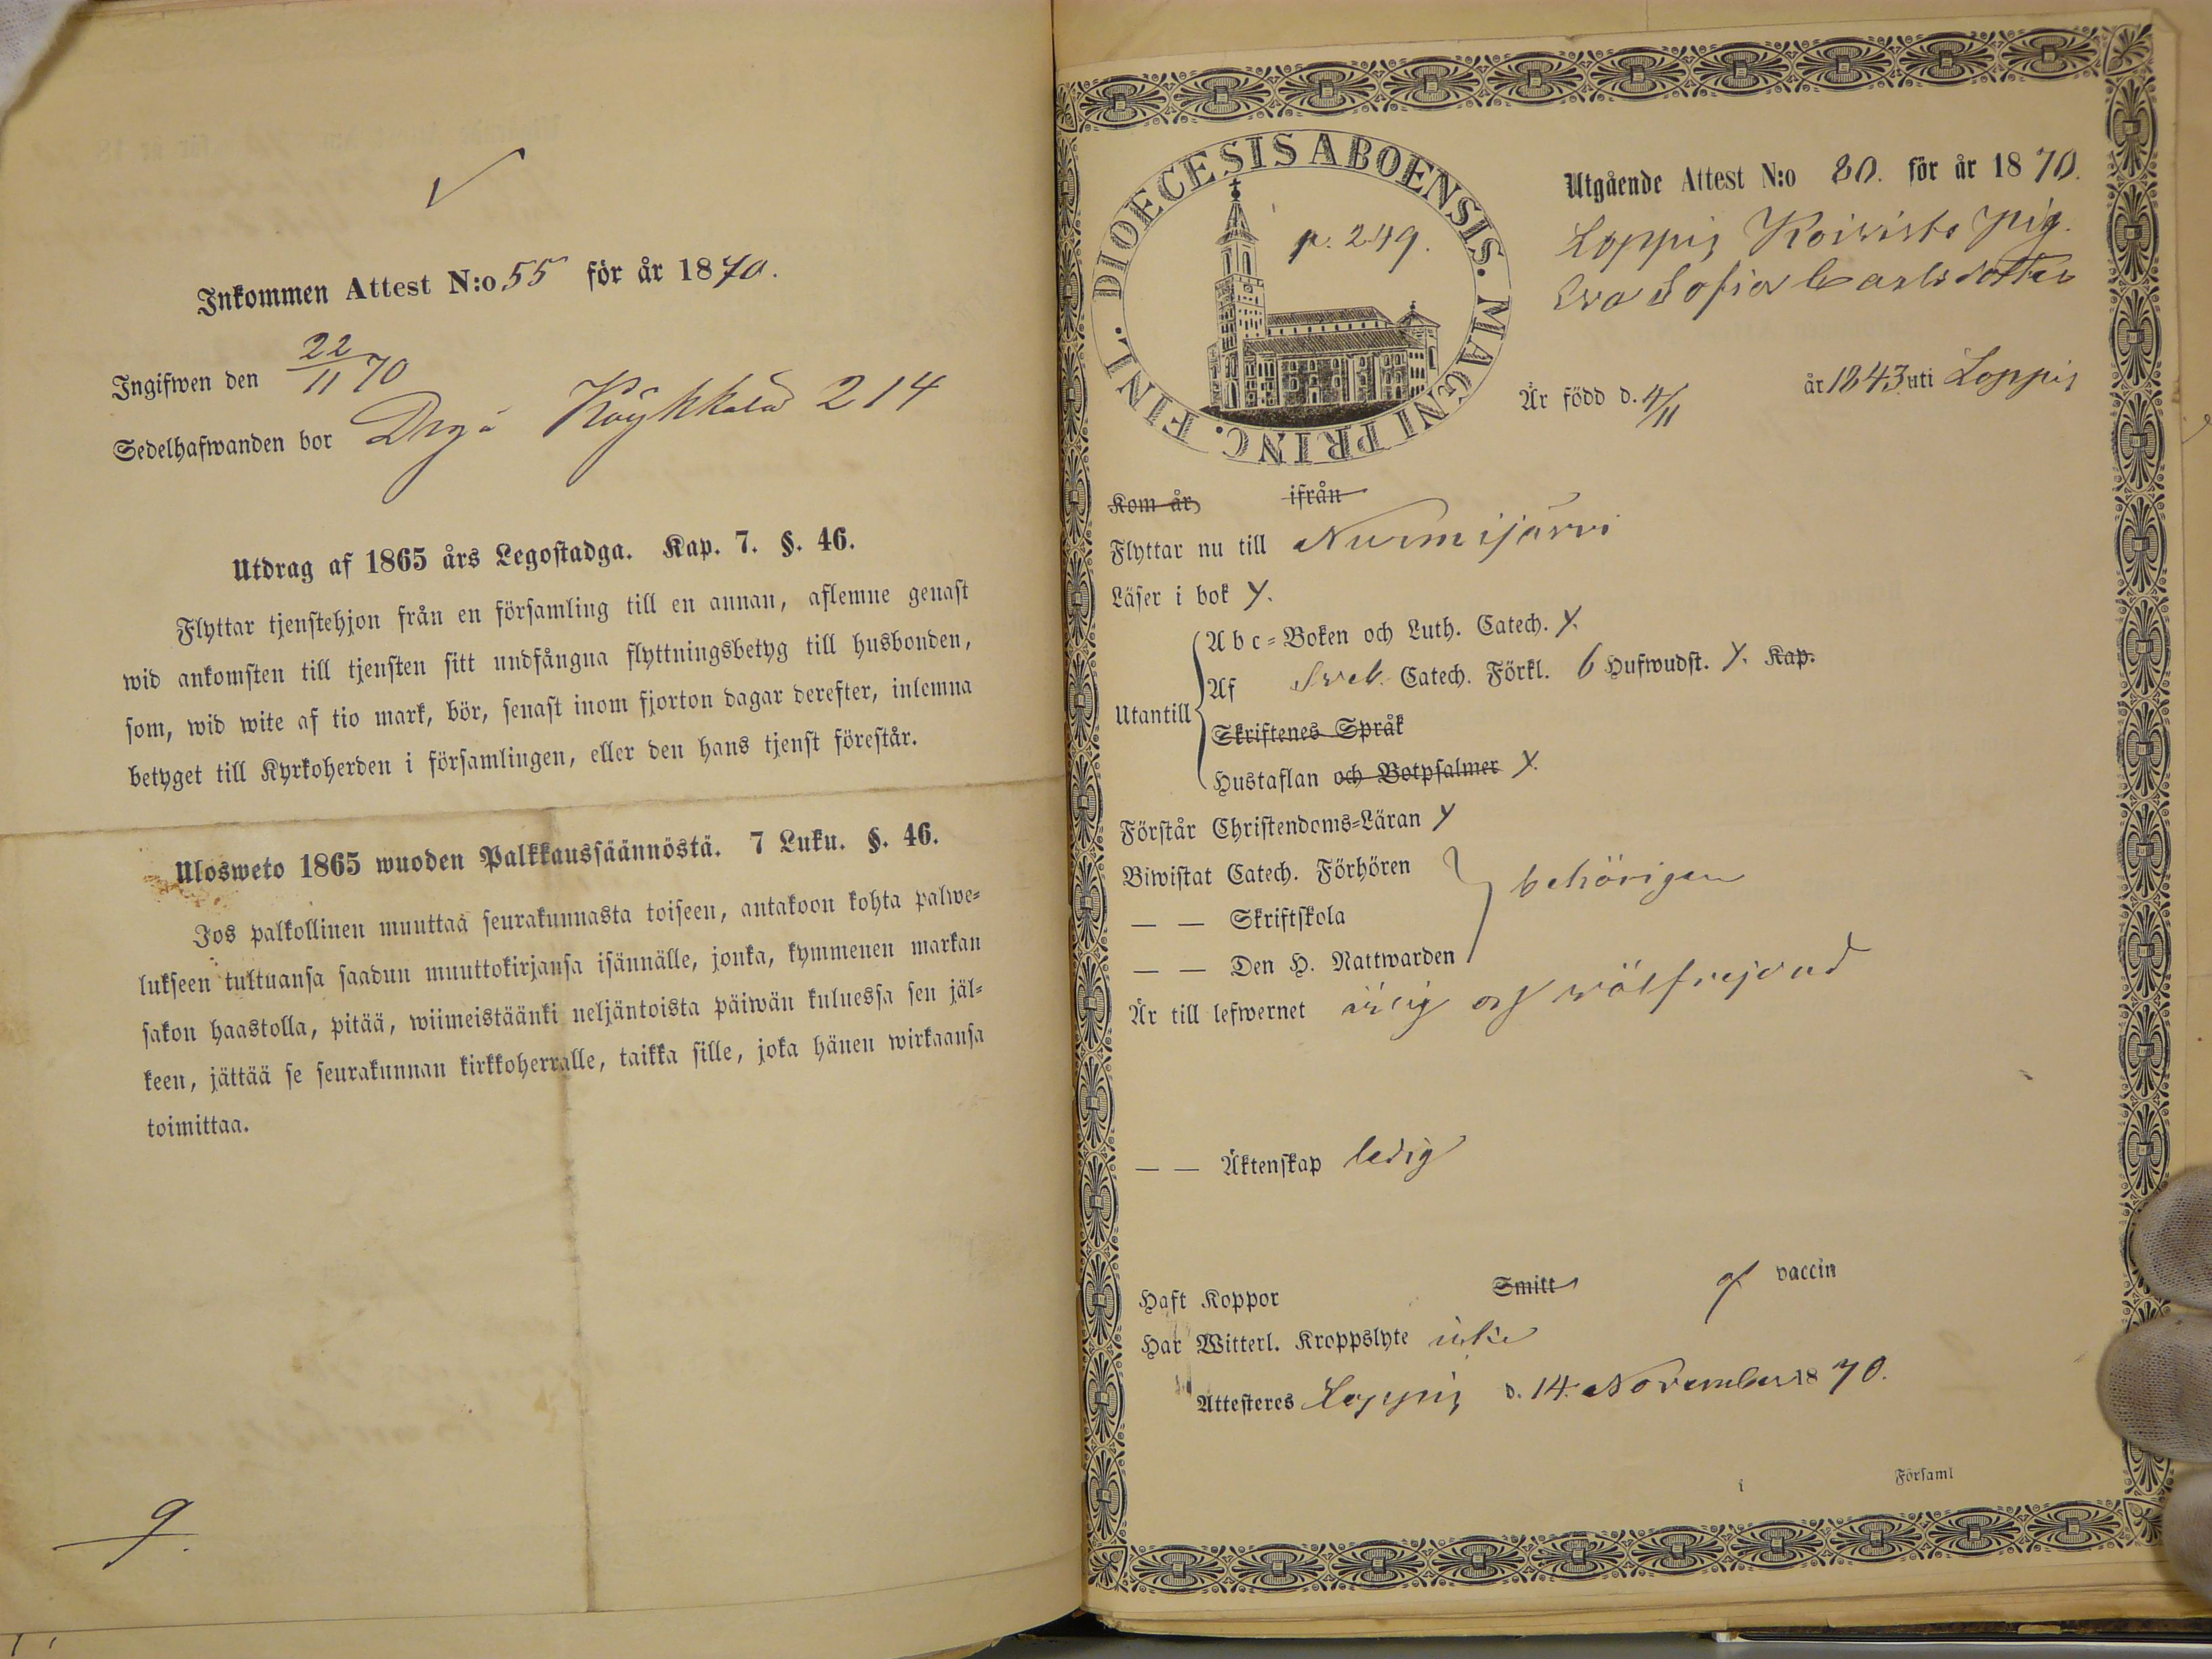 Inkommen Attest N:o 55 för år 1870.
Ingifwen den 22/11 70
Sedelhafwanden bor Köykkälä 214
Utdrag af 1865 års Legostadga. Kap. 7. §. 46.
Flyttar tjenstehjon från en församling till en annan, aflemne genast
wid ankomsten till tjensten sitt undfångna flyttningsbetyg till husbonden,
som, wid wite af tio mark, bör, senast inom fjorton dagar derefter, inlemna
betyget till Kyrkoherden i församlingen, eller den hans tjenst förestår.
Ulosweto 1865 wuoden Palkkaussäännöstä. 7 Luku. §. 46.
Jos palkollinen muuttaa seurakunnasta toiseen, antakoon kohta palwe=
lukseen tultuansa saadun muuttokirjansa isännälle, jonka, kymmenen markan
sakon haastolla, pitää, wiimeistäänki neljäntoista päiwän kuluessa sen jäl=
keen, jättää se seurakunnan kirkkoherralle, taikka sille, joka hänen wirkaansa
toimittaa.
9
DIOECESIS ABOENSIS. MAGNI PRINC. FINL.
p. 249.
Utgående Attest N:o 80. för år 1870.
Loppis Koivisto pig.
Eva Sofia Carlsdotter
Är född d. 4/11 år 1843 uti Loppis
Kom år ifrån
Flyttar nu till Nurmijärvi
Läser i bok y.
Utantill
Abc=Boken och Luth. Catech. y.
Af Sveb. Catech. Förkl. 6 Hufwudst. y. Kap.
Skriftenes Språk
Hustaflan och Botpsalmer y.
Förstår Christendoms=Läran y
Biwistat Catech. Förhören
— — Skriftskola behörigen
— — Den H. Nattwarden
Är till lefwernet ärlig och wälfrejdad
— — Äktenskap ledig
Haft Koppor Smitt vaccin
Har Witterl. Kroppslyte icke
Attesteres Loppis d. 14. November 1870.
i Församl